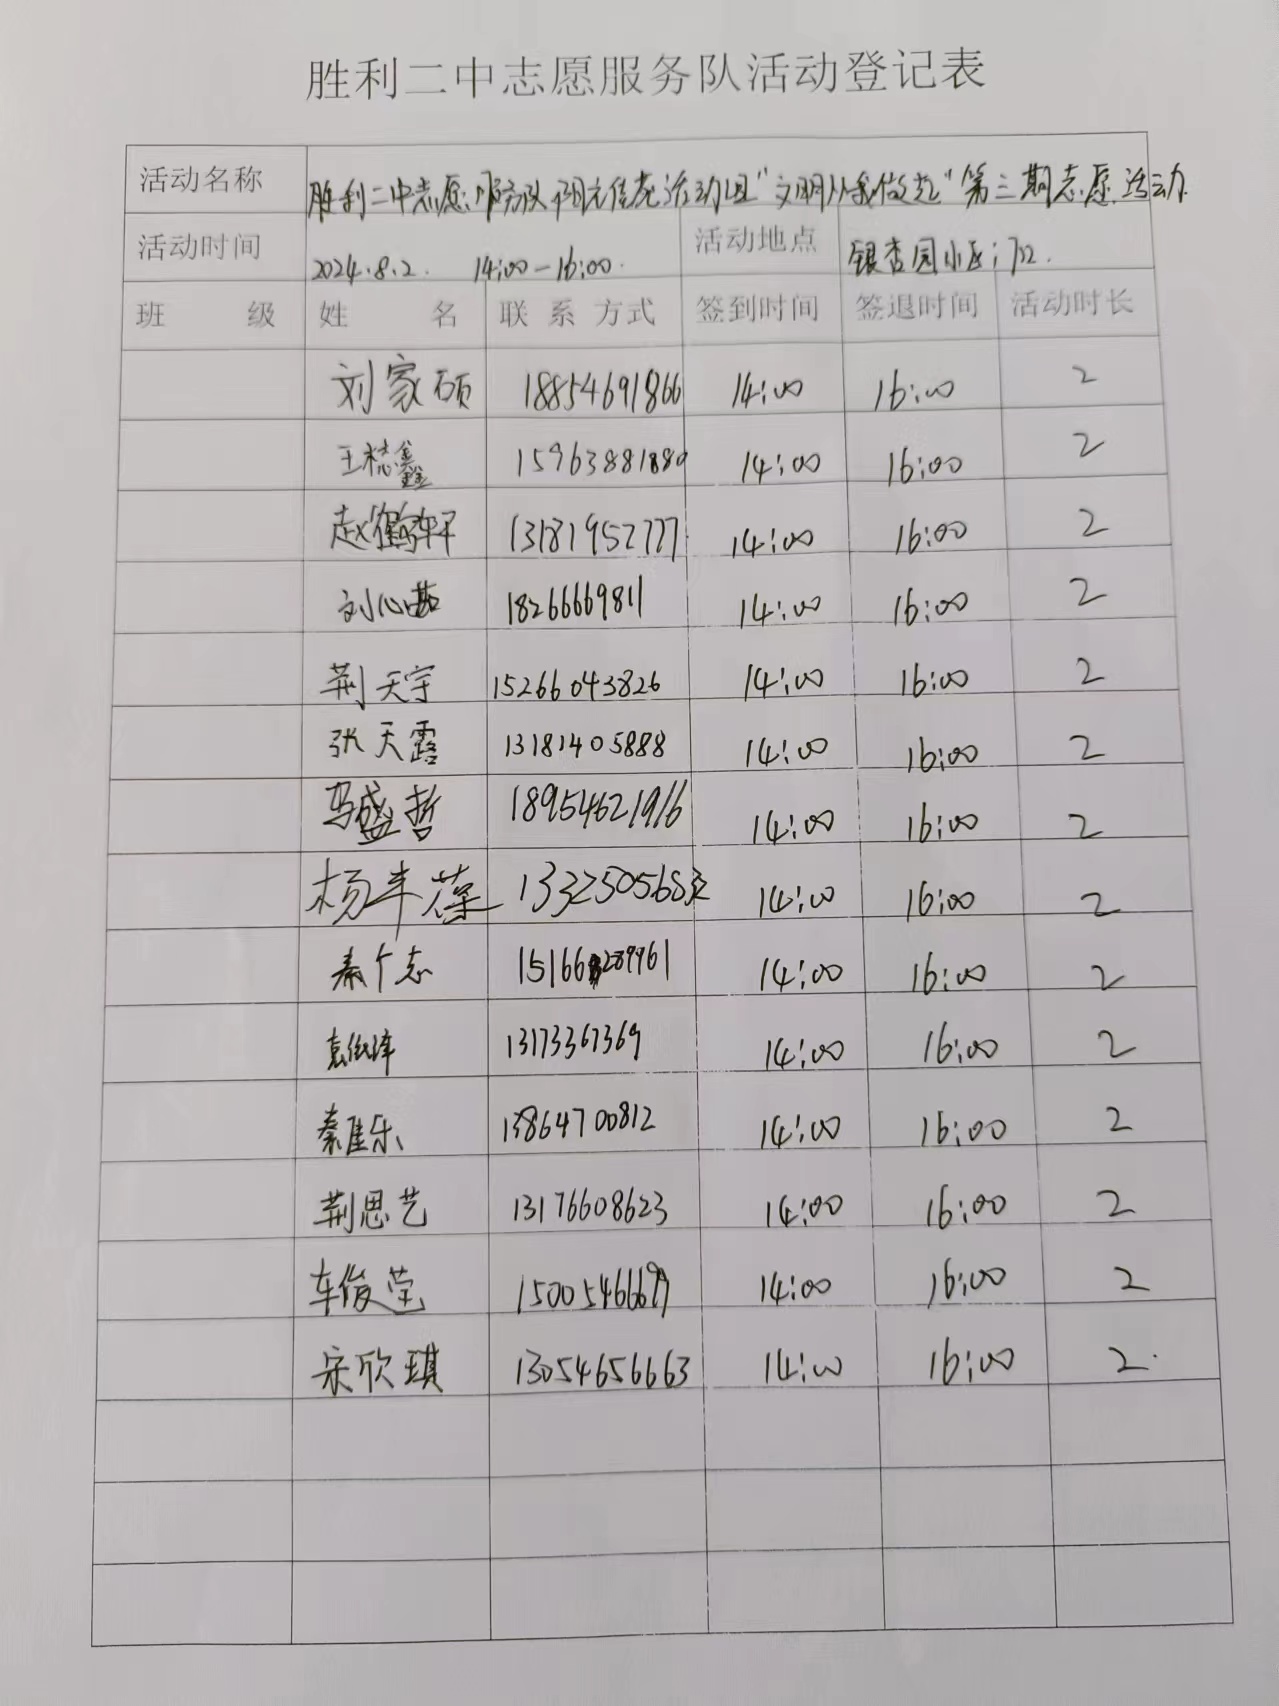 胜利二中志愿服务队活动登记表
活动名称 胜利二中志愿服务队阳光信光活动组"文明从我做起"第三期志愿活动
活动时间 2024.8.2. 14:00-16:00. 活动地点 银杏园小区门口.
班 级 姓 名 联 系 方式 签到时间 签退时间 活动时长
刘家硕 18854691866 14:00 16:00 2
王梽鑫 15963881880 14:00 16:00 2
赵鹤轩 13181952777 14:00 16:00 2
刘心茹 18266669811 14:00 16:00 2
荆天宇 15266043826 14:00 16:00 2
张天露 13181405888 14:00 16:00 2
马盛哲 18954621916 14:00 16:00 2
杨丰葆 14:00 16:00 2
秦个志 15166289961 14:00 16:00 2
13173367369 14:00 16:00 2
秦佳乐 13864700812 14:00 16:00 2
荆思艺 13176608623 14:00 16:00 2
车俊莹 14:00 16:00 2
宋欣琪 13054656663 14:00 16:00 2